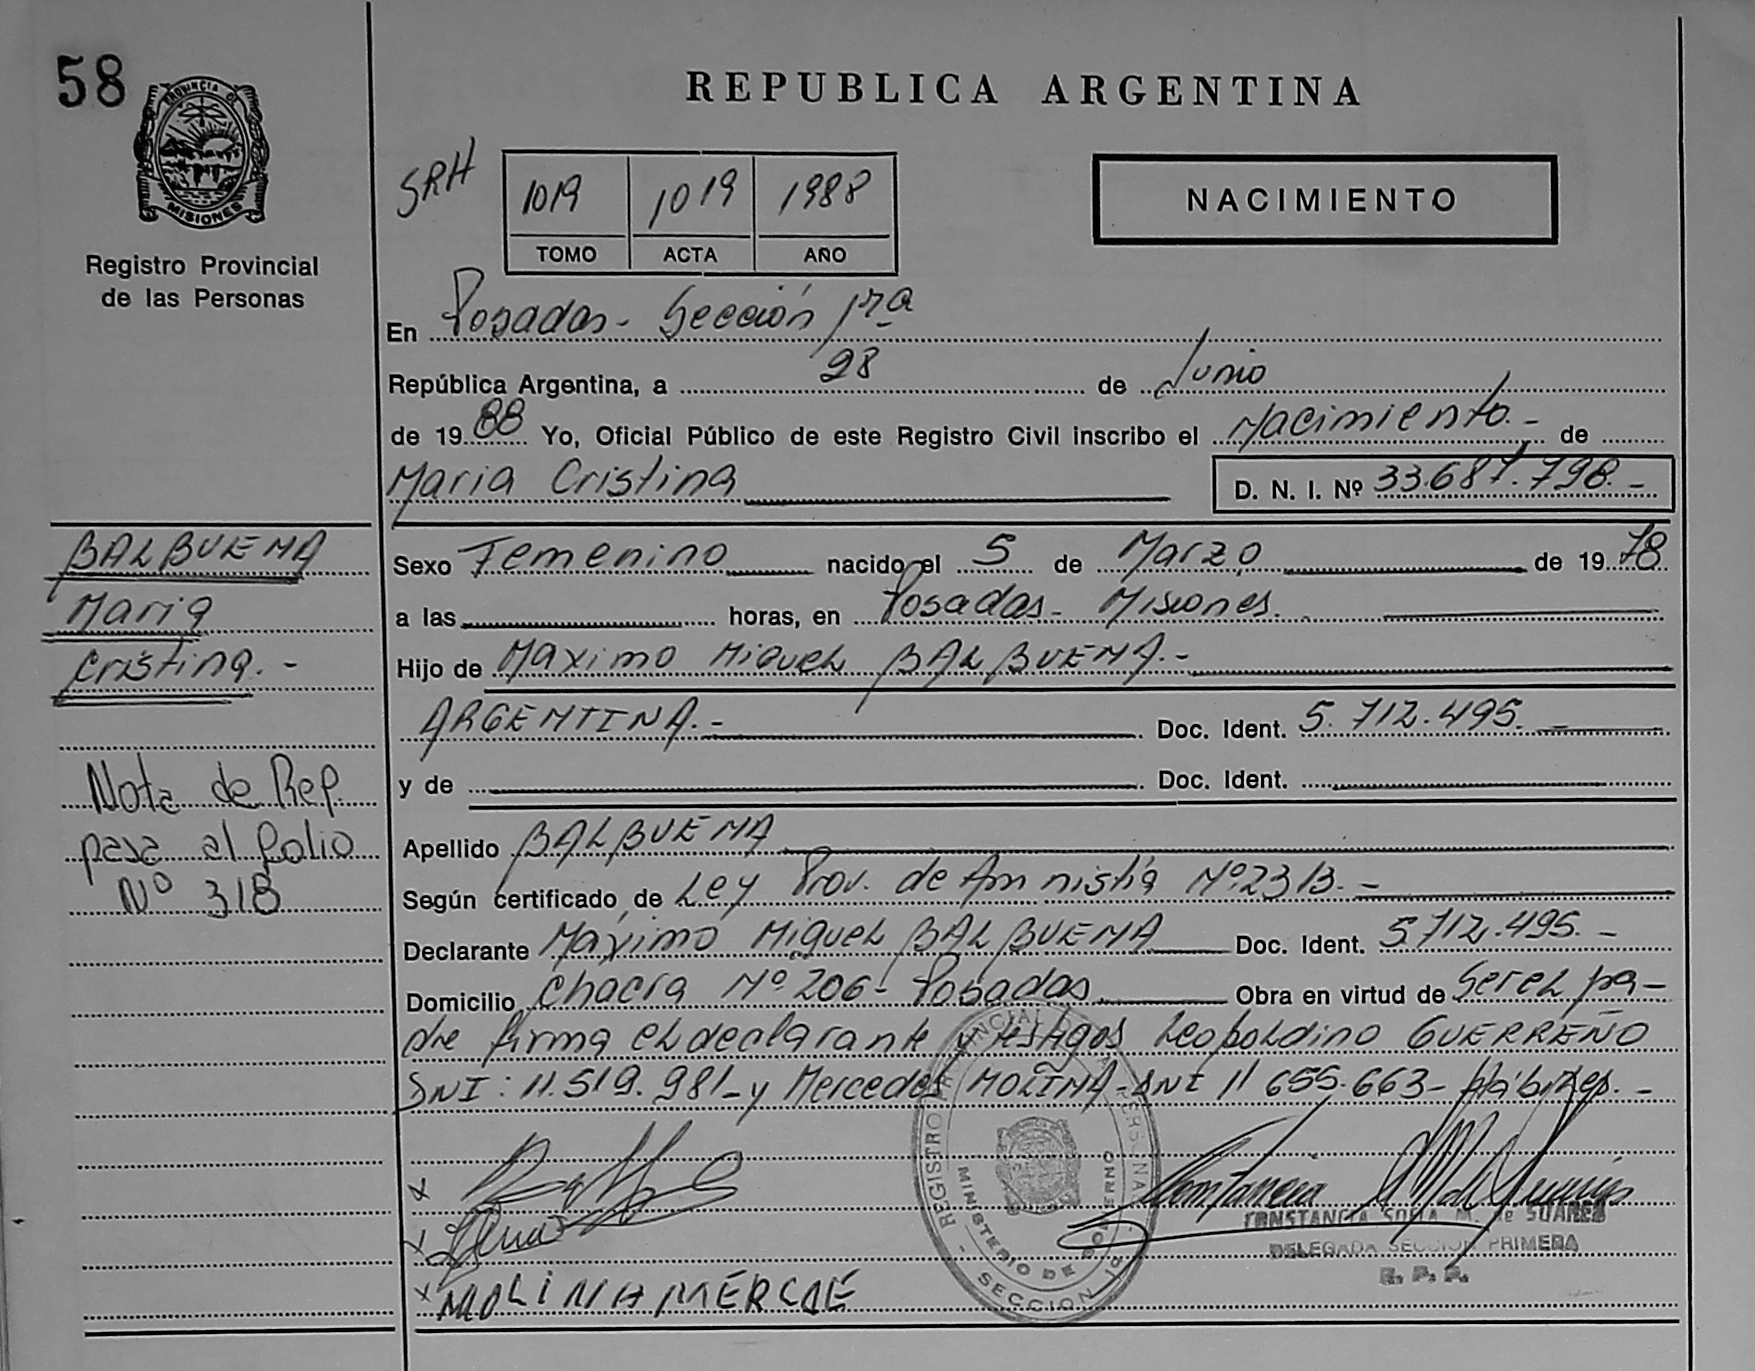 58
PROVINCIA DE
MISIONES
Registro Provincial
de las Personas
REPUBLICA ARGENTINA
SRH
1019 1019 1988
TOMO ACTA AÑO
NACIMIENTO
En Posadas - Sección 1ra
República Argentina, a 28 de Junio
de 19 88 Yo, Oficial Público de este Registro Civil inscribo el Nacimiento.- de
Maria Cristina D. N. I. Nº 33.687.798.-
BALBUENA
Maria
Cristina.-
Nota de Rep.
pasa al folio
Nº 318
Sexo Femenino nacido el 5 de Marzo de 19 78
a las horas, en Posadas - Misiones.
Hijo de Maximo Miguel BALBUENA.-
ARGENTINA.- Doc. Ident. 5.712.495.-
y de Doc. Ident.
Apellido BALBUENA
Según certificado de Ley Prov. de Amnistia Nº 2313.-
Declarante Máximo Miguel BALBUENA Doc. Ident. 5.712.495.-
Domicilio Chacra Nº 206 - Posadas Obra en virtud de Ser el pa-
dre firma el declarante y testigos Leopoldino GUERREÑO
DNI: 11.519.981- y Mercedes MOLINA - DNI 11 655.663- Hábiles.-
x
x
x MOLINA MERCDE
REGISTRO PROVINCIAL DE LAS PERSONAS
MINISTERIO DE GOBIERNO
SECCION
CONSTANCIA SOFIA M. de SUAREZ
DELEGADA SECCION PRIMERA
R. P. P.